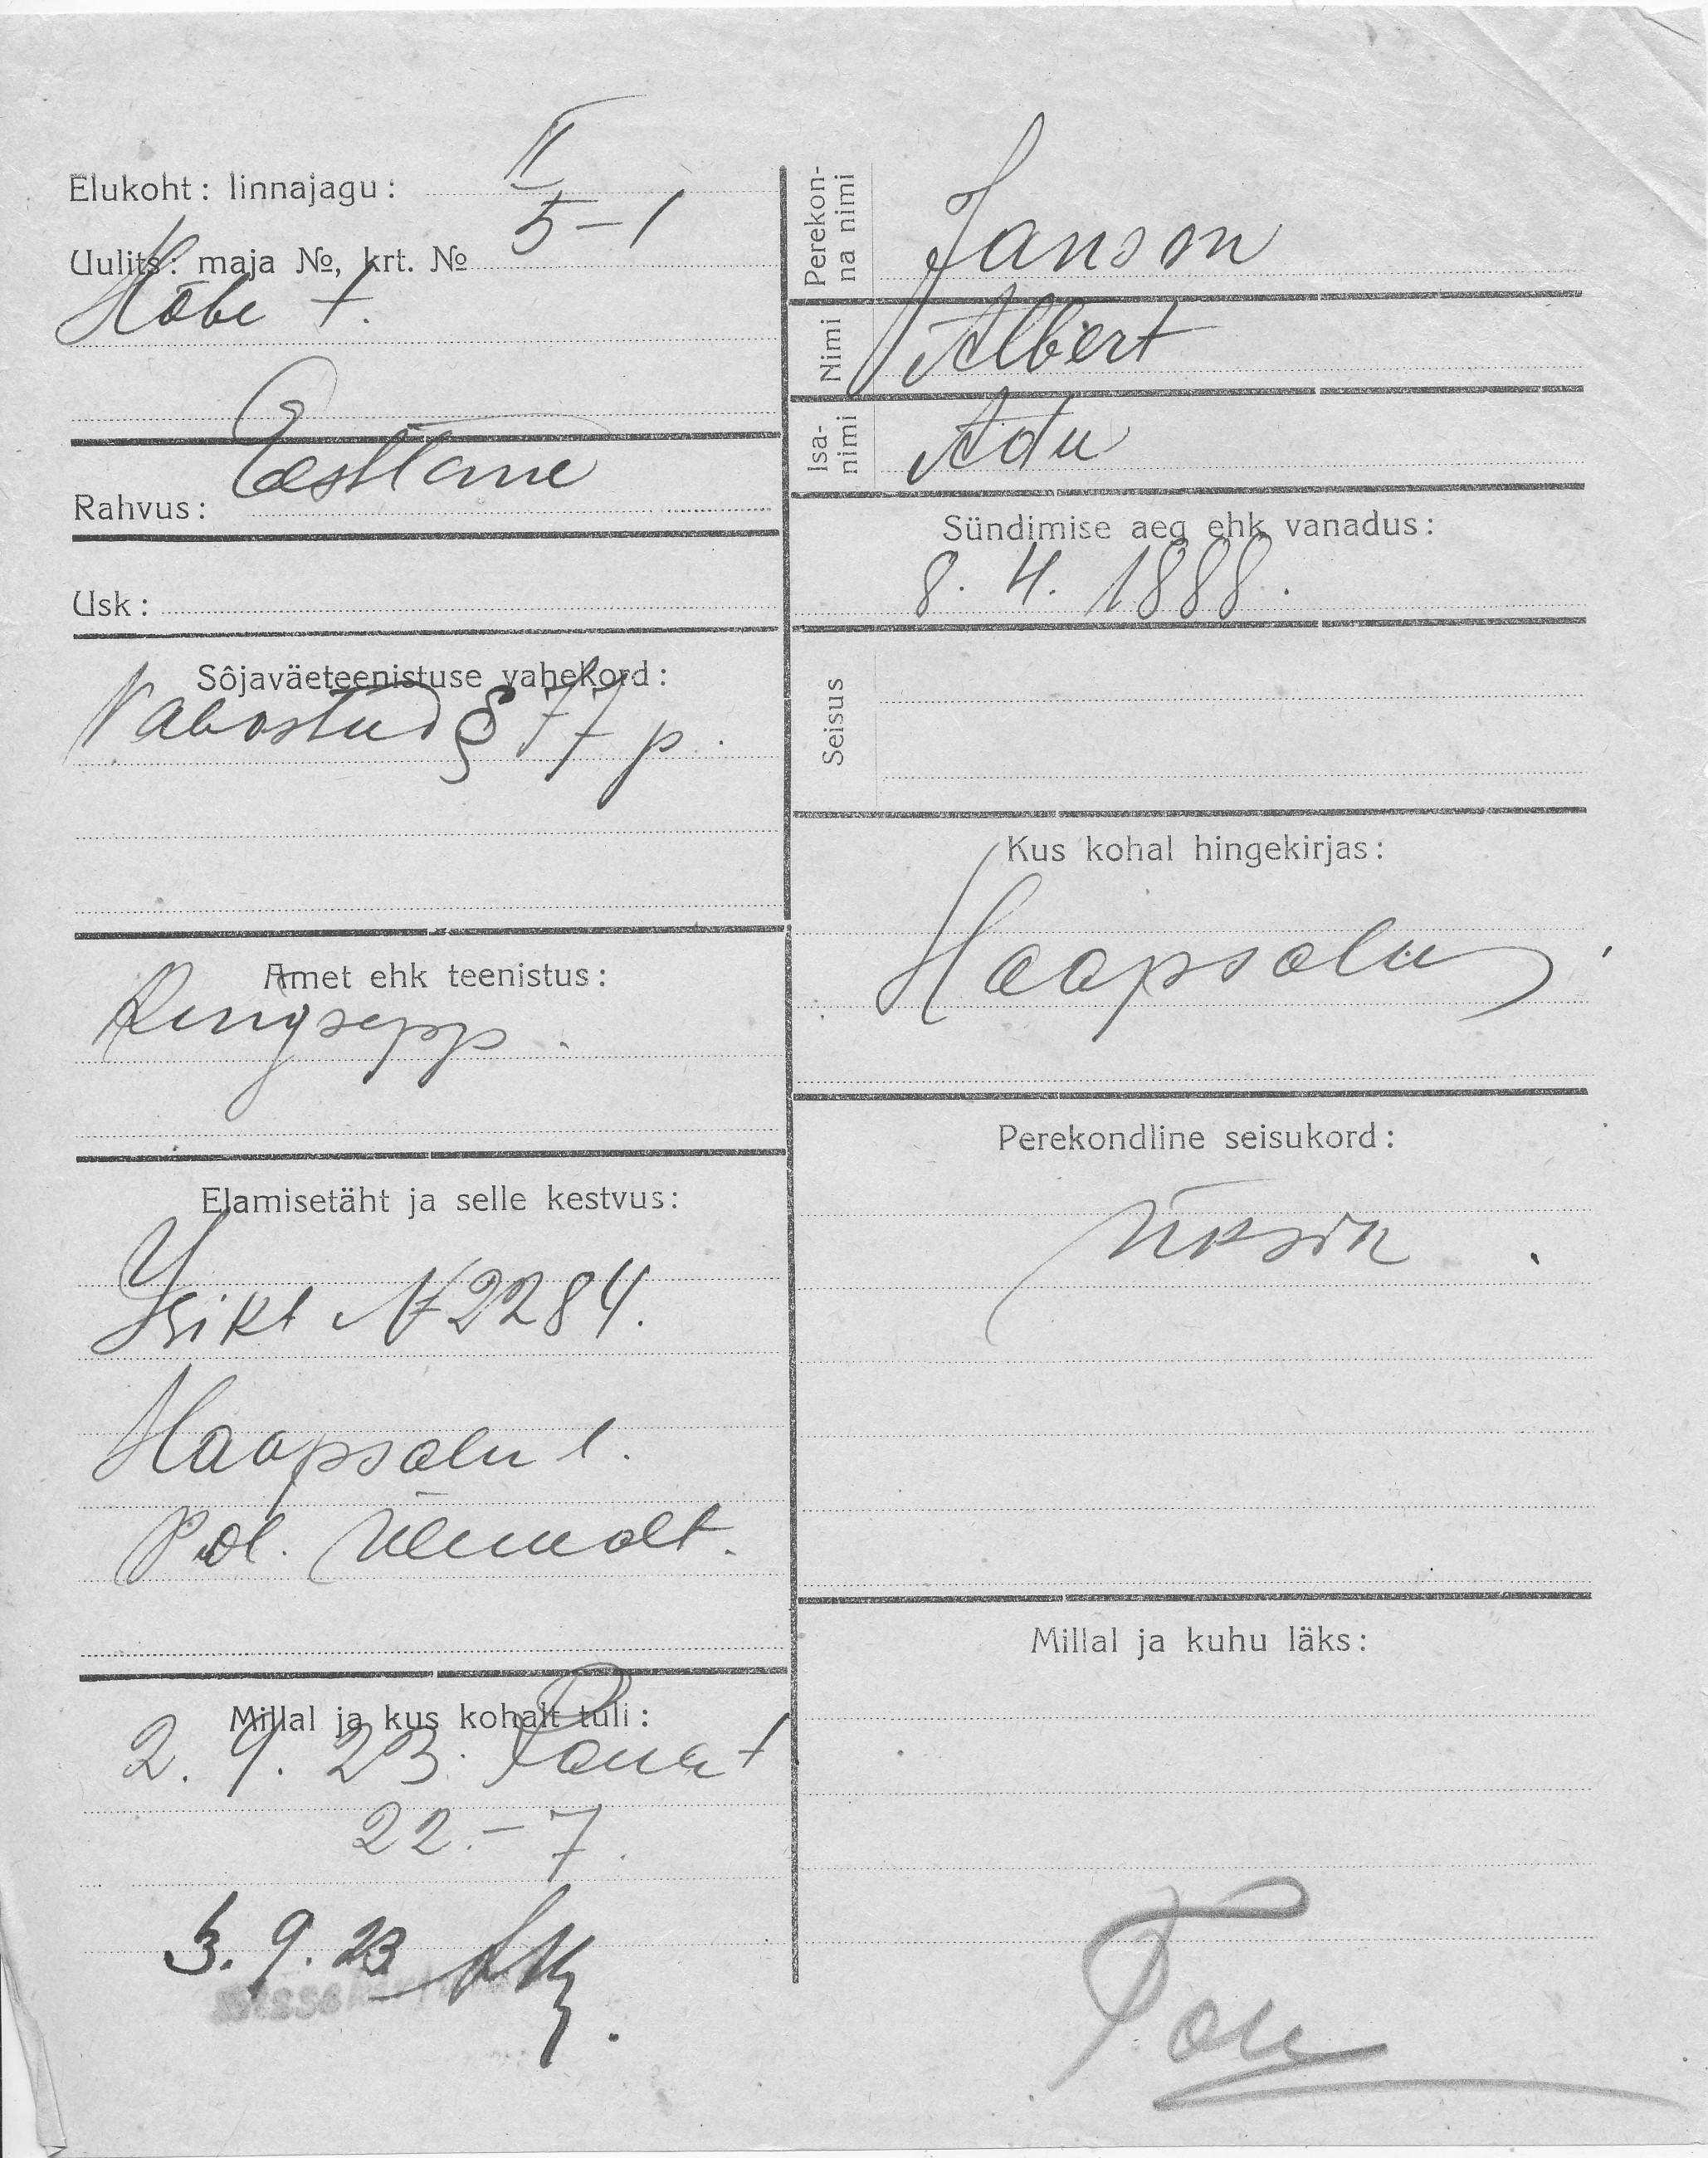 Elukoht: linnajagu: II
Uulits: maja №, krt. № 5-1
Hõbe t.
Rahvus: Eestlane
Usk:
Sôjaväeteenistuse vahekord:
Vabastud § 77 p.
Amet ehk teenistus:
Kingsepp.
Elamisetäht ja selle kestvus:
Isikt N 2284.
Haapsalu l.
Pol. ülemalt.
Millal ja kus kohalt tuli:
2. 9. 23.
22.-7.
3. 9. 23
Perekon-
na nimi
Janson
Nimi
Albert
Isa-
nimi
Adu
Sündimise aeg ehk vanadus:
8. 4. 1888.
Seisus
Kus kohal hingekirjas:
Haapsalu
Perekondline seisukord:
Üksik
Millal ja kuhu läks: